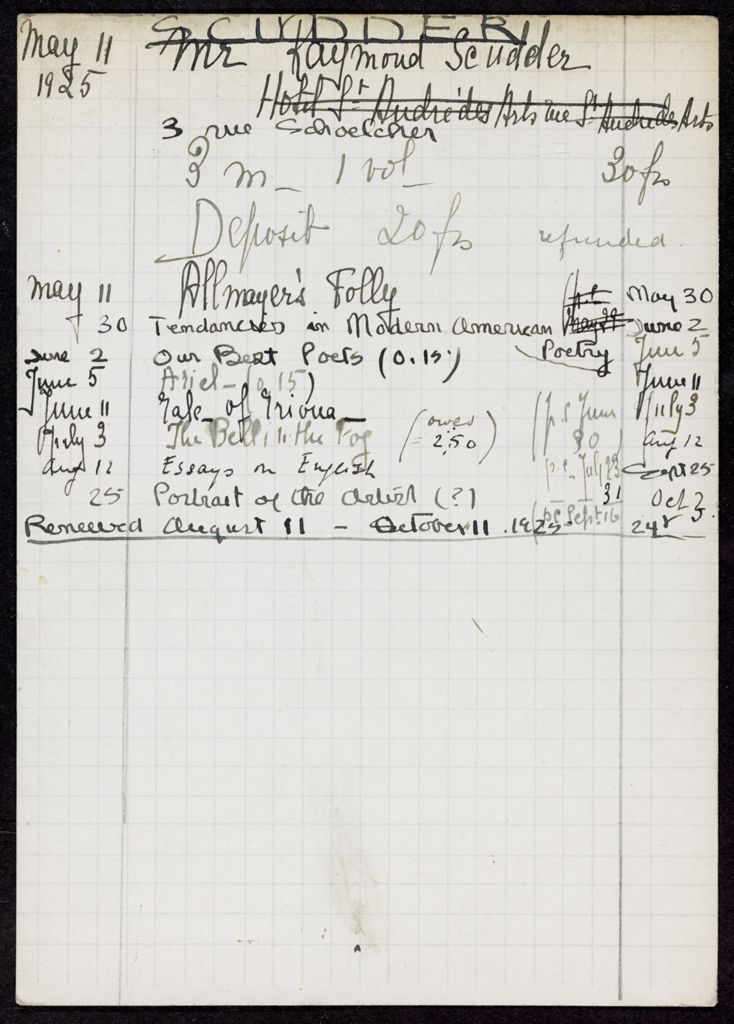 SCUDDER
May 11 Mr Raymond Scudder
1925
Hotel St André des Arts rue St André des Arts
3 rue Schoelcher
3 m_ 1 vol_ 30 frs
Deposit 20 frs refunded
May 11 Allmayer's Folly May 30
30 Tendancies in Modern American Poetry June 2
June 2 Our Best Poets (0.15) June 5
June 5 Ariel_ (0,15) June 11
June 11 Tale of Triona_ (p.c June 30) July 3
July 3 The Bell in the Fog (owes 2,50) Aug 12
Aug 12 Essays on English (p.c. July 23 31 Sept 25
25 Portrait of the Artist (?) (p.c Sept 16 Oct 3
Renewed August 11 - October 11 . 1925 24